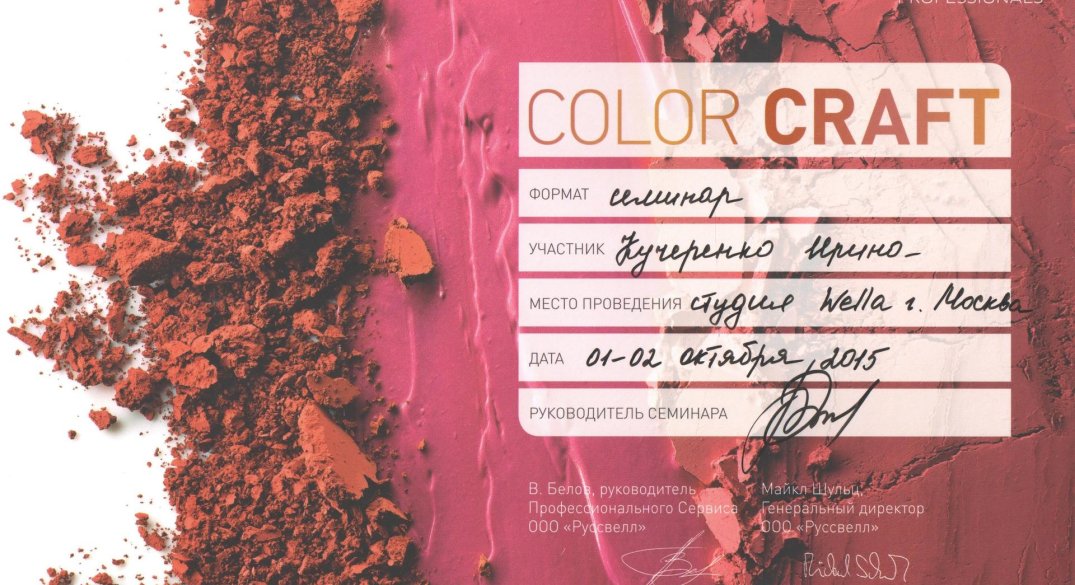 PROFESSIONALS
COLOR CRAFT
ФОРМАТ семинар
УЧАСТНИК Кучеренко Ирина
МЕСТО ПРОВЕДЕНИЯ студия Wella г. Москва
ДАТА 01-02 октября, 2015
РУКОВОДИТЕЛЬ СЕМИНАРА
В. Белов, руководитель
Профессионального Сервиса
ООО «Руссвелл»
Майкл Шульц,
Генеральный директор
ООО «Руссвелл»